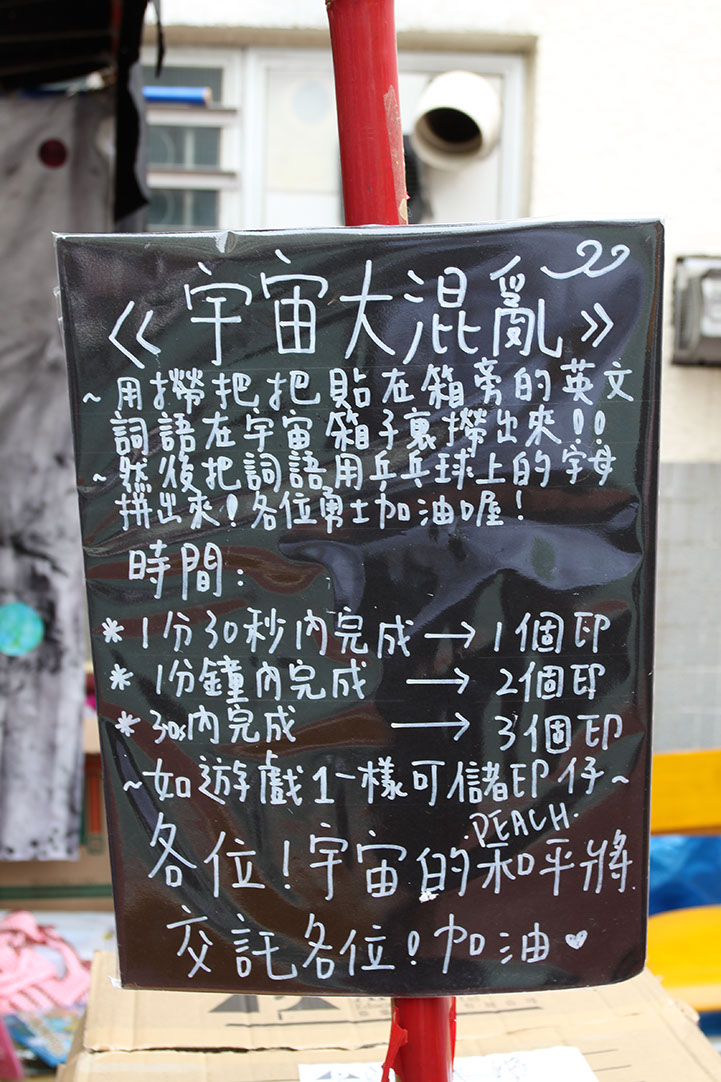 《宇宙大混亂》
~用撈把把貼在箱旁的英文
詞語在宇宙箱子裏撈出來!!
~然後把詞語用乒乓球上的字母
拼出來!各位勇士加油喔!
時間:
*1分30秒內完成→1個印
*1分鐘內完成→2個印
*30s內完成→3個印
~如遊戲1一樣可儲印仔~
·PEACH·
各位!宇宙的和平將
交託各位!加油♥